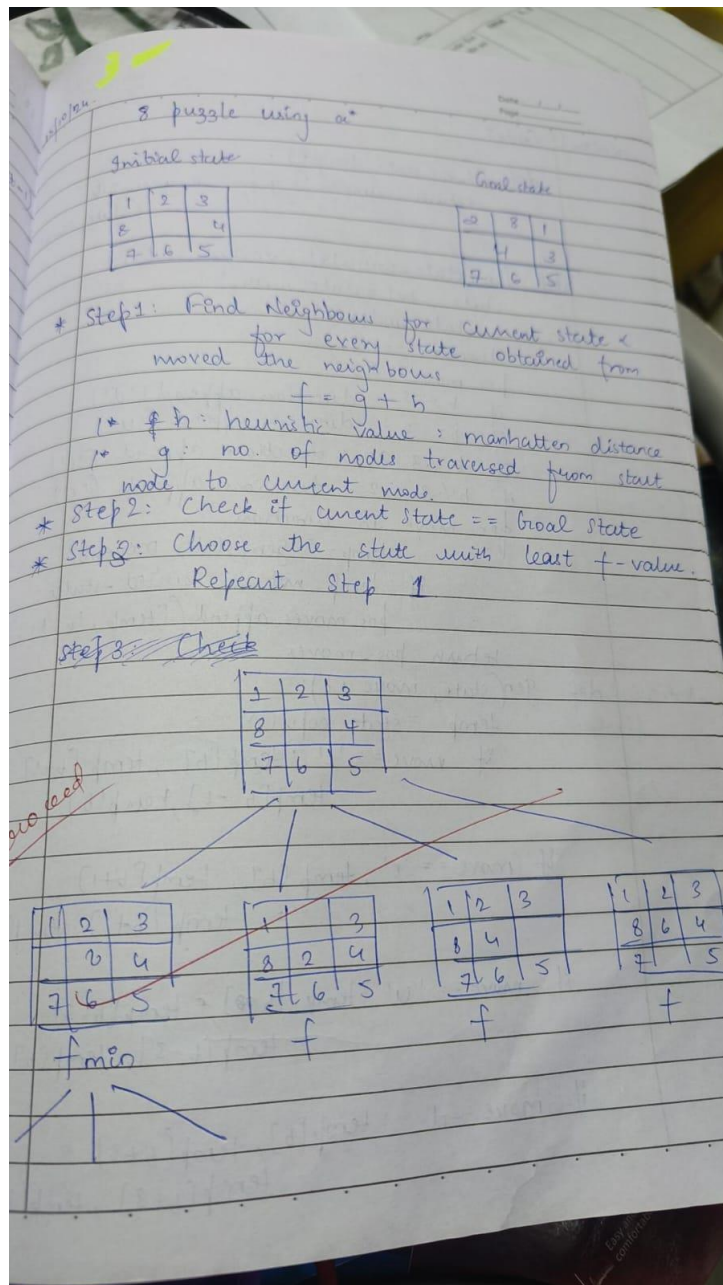 8 puzzle using a*
Initial state
Goal state
1 2 3
8 4
7 6 5
2 8 1
4 3
7 6 5
* Step1: Find Neighbours for current state &
for every state obtained from
moved the neighbours
f = g + h
h: heuristic value: manhatten distance
g: no. of nodes traversed from start
node to current node.
* Step 2: Check if current state == Goal state
* Step 3: Choose the state with least f-value.
Repeat Step 1
step 3: Check
1 2 3
8 4
7 6 5
proceed
1 2 3
8 4
7 6 5
1 3
8 2 4
7 6 5
1 2 3
8 4
7 6 5
1 2 3
8 6 4
7 5
f min
f
f
f